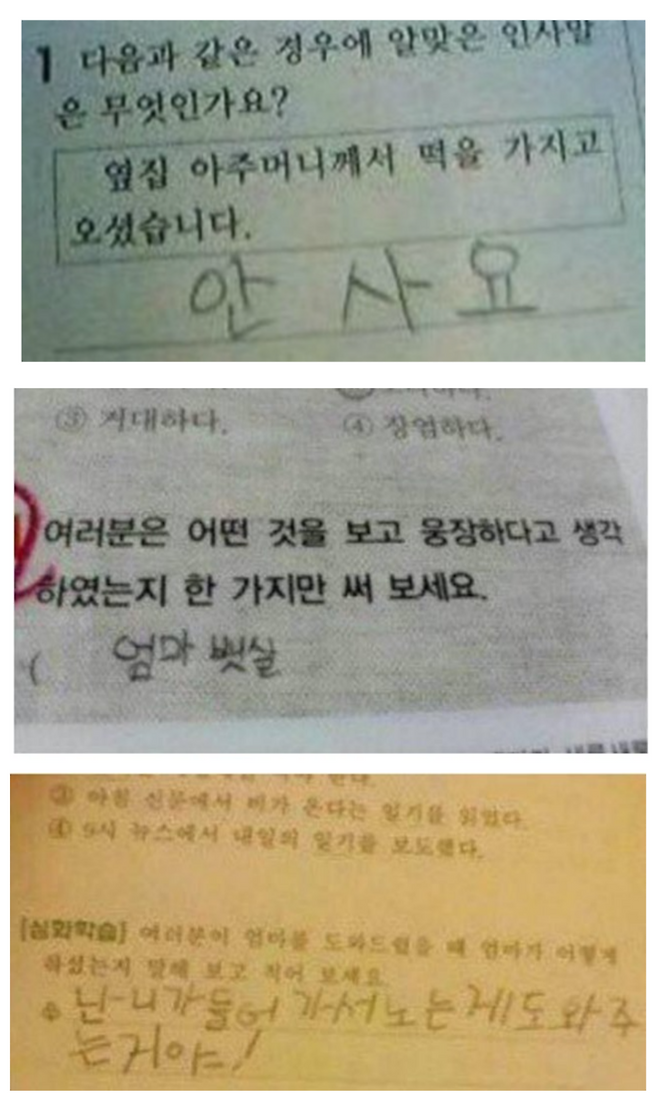 1 다음과 같은 경우에 알맞은 인사말
은 무엇인가요?
옆집 아주머니께서 떡을 가지고
오셨습니다.
안 사 요
③ 거대하다. ④ 장엄하다.
여러분은 어떤 것을 보고 웅장하다고 생각
하였는지 한 가지만 써 보세요.
( 엄마 뱃살
③ 아침 신문에서 비가 온다는 일기를 읽었다.
④ 9시 뉴스에서 내일의 일기를 보도했다.
[심화학습] 여러분이 엄마를 도와드렸을 때 엄마가 어떻게
하셨는지 말해 보고 적어 보세요.
닌 니가 들어가서 노는게 도와주
는거야!